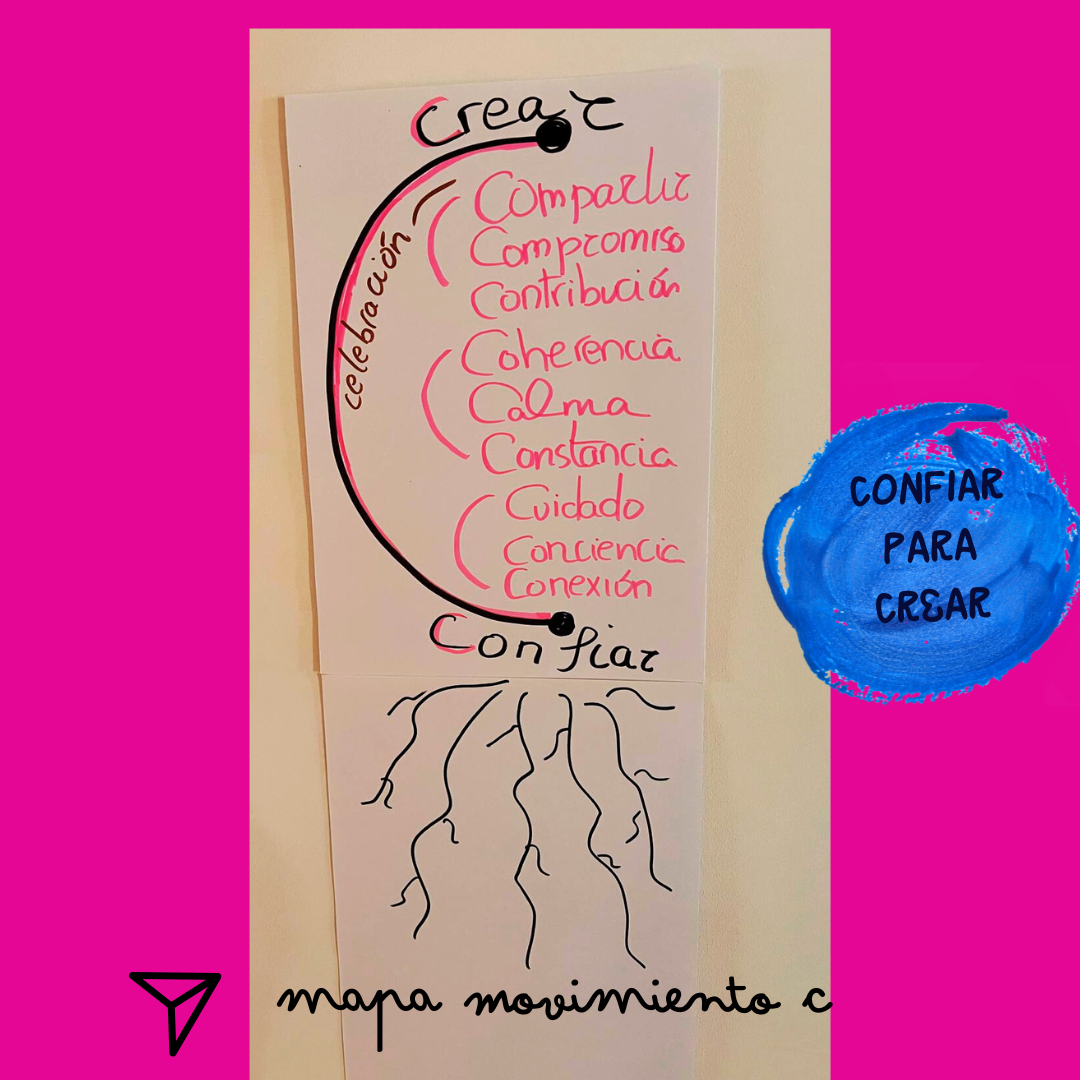 Crear
celebración
Compartir
Compromiso
Contribución
Coherencia
Calma
Constancia
Cuidado
Conciencia
Conexión
Confiar
CONFIAR
PARA
CREAR
mapa movimiento c